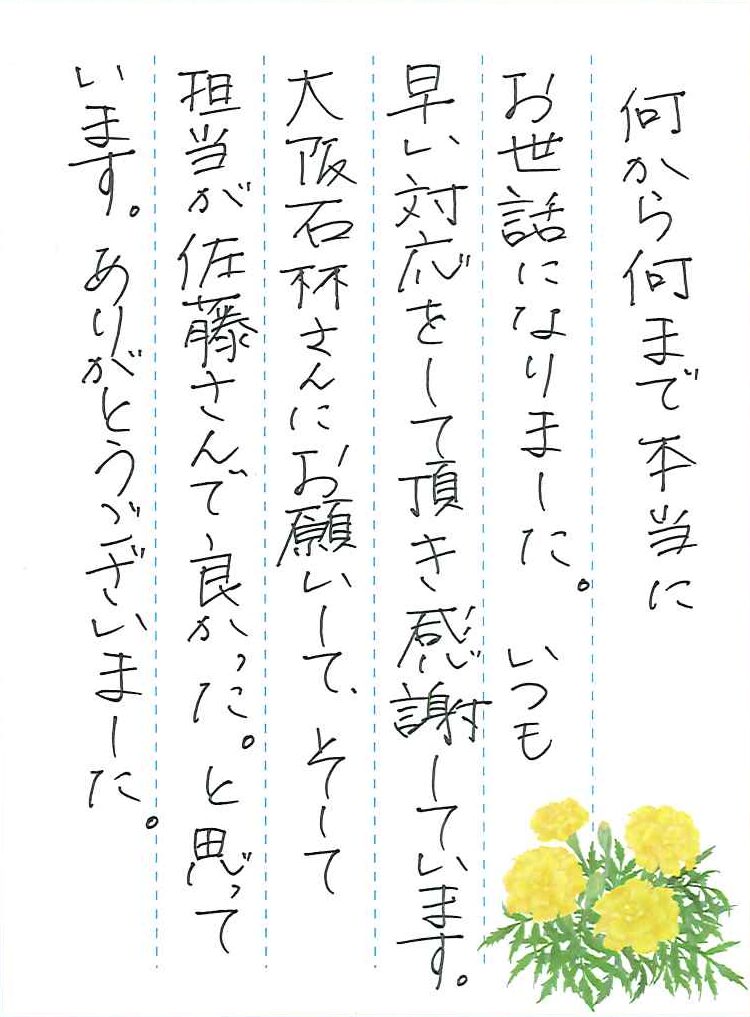 何から何まで本当に
お世話になりました。いつも
早い対応をして頂き感謝しています。
大阪石杯さんにお願いして、そして
担当が佐藤さんで良かった。と思って
います。ありがとうございました。